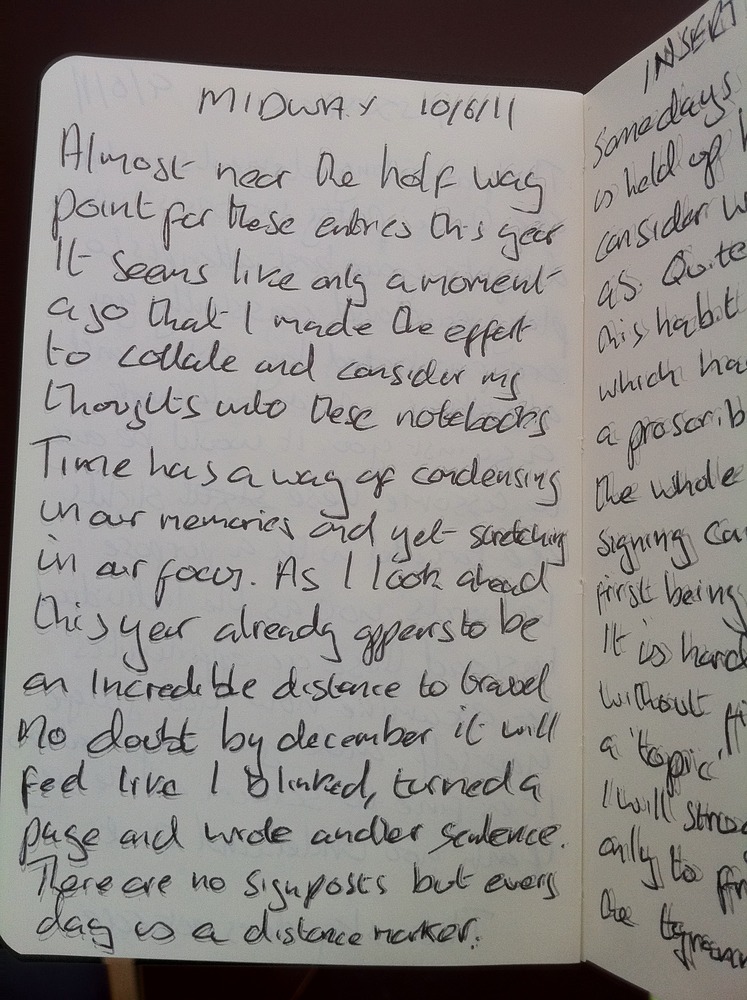 MIDWAY 10/6/11
Almost near the half way
point for these entries this year
It seems like only a moment
ago that I made the effort
to collate and consider my
thoughts into these notebooks
Time has a way of condensing
in our memories and yet stretching
in our focus. As I look ahead
this year already appears to be
an incredible distance to travel
No doubt by december it will
feel like I blinked, turned a
page and wrote another sentence.
There are no signposts but every
day is a distance marker.
INSERT
Somedays
is held up
consider
as. Quite
this habit
which
a proscrib
the whole
signing
first being
It is hard
without
a 'topic'
I will
only to
the